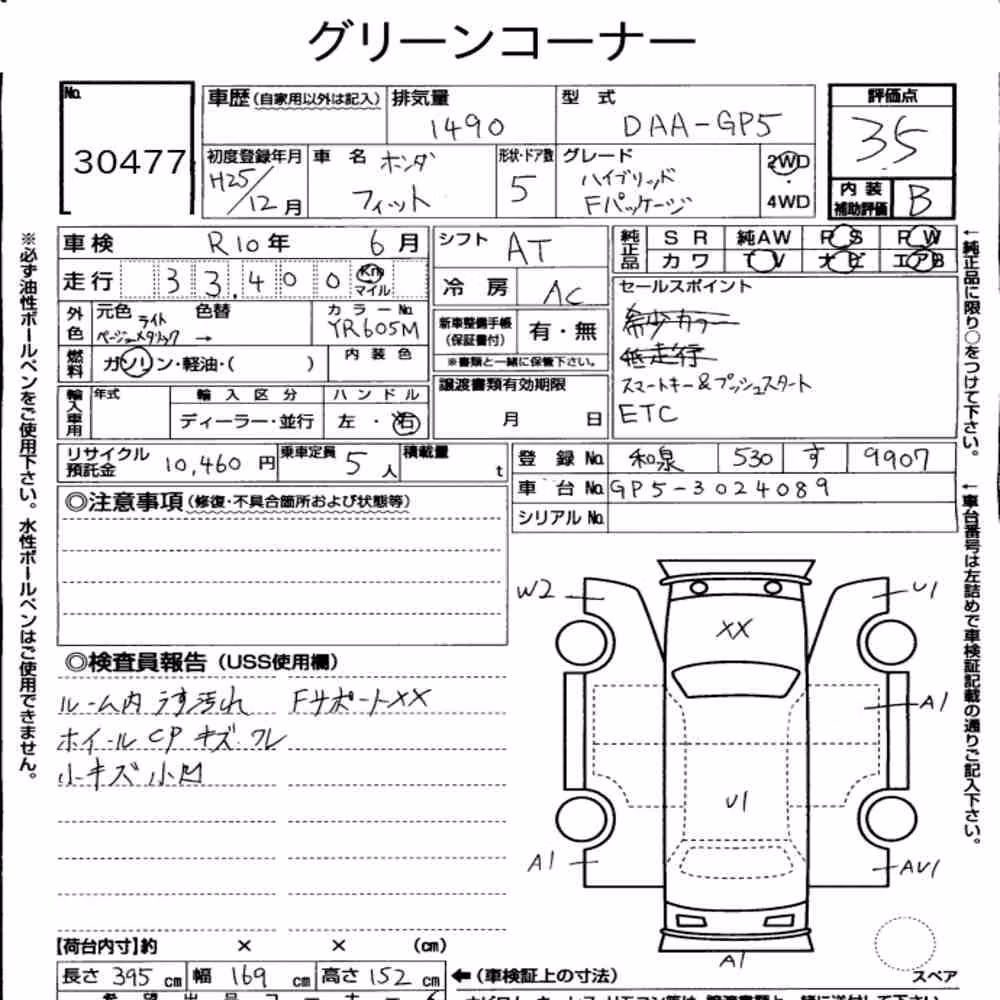 グリーンコーナー
No. 30477
車歴(自家用以外は記入) 排気量 1490 型式 DAA-GP5
評価点 35
初度登録年月 H25/12月 車名 ホンダ フィット 形状・ドア数 5 グレード ハイブリッド Fパッケージ 2WD・4WD
内装補助評価 B
車検 R10年 6月 シフト AT
純正品 SR 純AW PS PW
カワ TV ナビ エアB
走行 33,400 Km マイル 冷房 AC
セールスポイント
希少カラー
低走行
スマートキー&プッシュスタート
ETC
外色 元色 ライトベージュメタリック 色替 → カラーNo. YR605M
新車整備手帳(保証書付) 有・無
※書類と一緒に保管下さい。
燃料 ガソリン・軽油・( ) 内装色
譲渡書類有効期限 月 日
輸入車用 年式 輸入区分 ディーラー・並行 ハンドル 左・右
リサイクル預託金 10,460円 乗車定員 5人 積載量 t
登録No. 和泉 530 す 9907
車台No. GP5-3024089
シリアルNo.
◎注意事項(修復・不具合箇所および状態等)
◎検査員報告(USS使用欄)
ルーム内 うす汚れ FサポートXX
ホイールCP キズ ワレ
小キズ小凹
W2
U1
XX
A1
U1
A1
AU1
A1
スペア
【荷台内寸】約 × × (cm)
長さ 395cm 幅 169cm 高さ 152cm ←(車検証上の寸法)
※必ず油性ボールペンをご使用下さい。水性ボールペンはご使用できません。
←純正品に限り○をつけて下さい。
←車台番号は左詰めで車検証記載の通りご記入下さい。